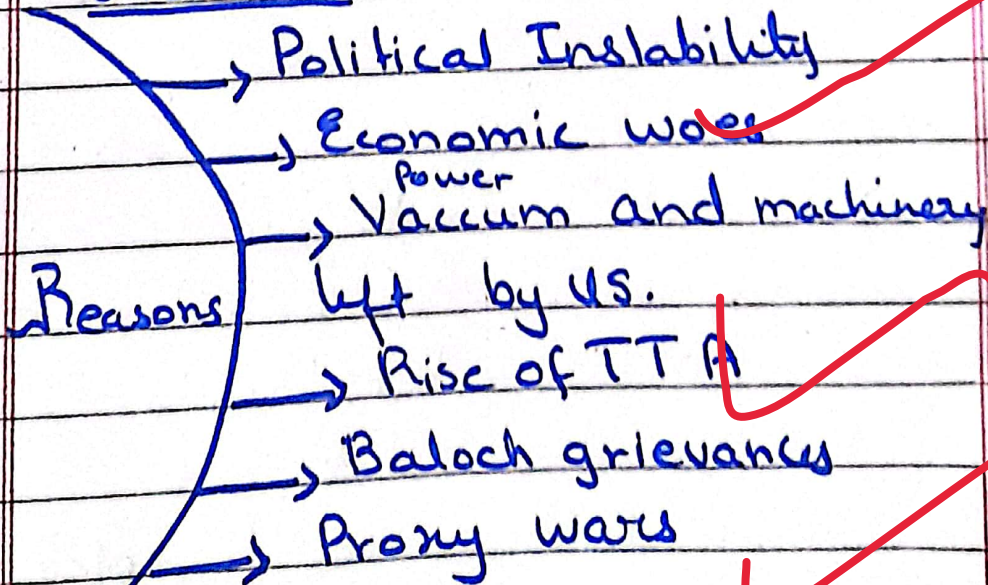 Political Instability
Economic woes
Power
Vaccum and machinery
left by US.
Reasons
Rise of TTA
Baloch grievances
Proxy wars